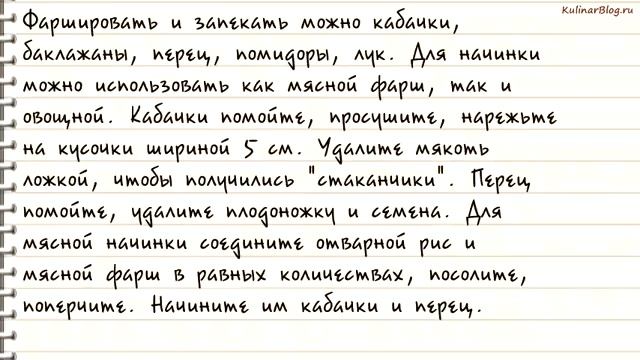 KulinarBlog.ru
Фаршировать и запекать можно кабачки,
баклажаны, перец, помидоры, лук. Для начинки
можно использовать как мясной фарш, так и
овощной. Кабачки помойте, просушите, нарежьте
на кусочки шириной 5 см. Удалите мякоть
ложкой, чтобы получились "стаканчики". Перец
помойте, удалите плодоножку и семена. Для
мясной начинки соедините отварной рис и
мясной фарш в равных количествах, посолите,
поперчите. Начините им кабачки и перец.